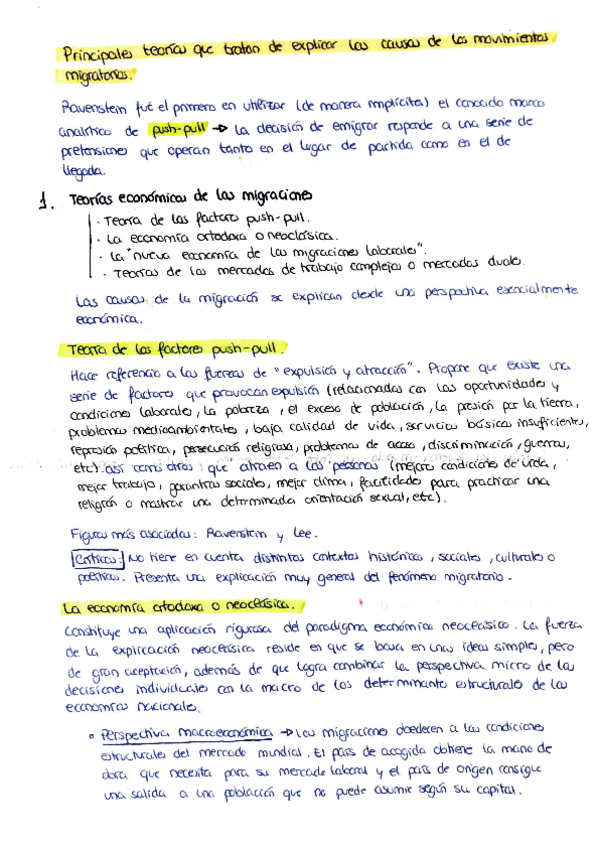 Principales teorías que tratan de explicar las causas de los movimientos
migratorios.
Ravenstein fué el primero en utilizar (de manera implícita) el conocido marco
analítico de push-pull → La decisión de emigrar responde a una serie de
pretensiones que operan tanto en el lugar de partida como en el de
llegada.
1. Teorías económicas de las migraciones
· Teoría de los factores push-pull.
· La economía ortodoxa o neoclásica.
· La "nueva economía de las migraciones laborales".
· Teorías de los mercados de trabajo complejos o mercados duales.
Las causas de la migración se explican desde una perspectiva esencialmente
económica.
Teoría de los factores push-pull.
Hace referencia a las fuerzas de "expulsión y atracción". Propone que existe una
serie de factores que provocan expulsión (relacionados con las oportunidades y
condiciones laborales, la pobreza, el exceso de población, la presión por la tierra,
problemas medioambientales, baja calidad de vida, servicios básicos insuficientes,
represión política, persecución religiosa, problemas de acoso, discriminación, guerras,
etc) así como otros que atraen a las personas (mejores condiciones de vida,
mejor trabajo, garantías sociales, mejor clima, facilidades para practicar una
religión o mostrar una determinada orientación sexual, etc).
Figuras más asociadas: Ravenstein y Lee.
Críticas: No tiene en cuenta distintos contextos históricos, sociales, culturales o
políticos. Presenta una explicación muy general del fenómeno migratorio.
La economía ortodoxa o neoclásica.
Constituye una aplicación rigurosa del paradigma económico neoclásico. La fuerza
de la explicación neoclásica reside en que se basa en unas ideas simples, pero
de gran aceptación, además de que logra combinar la perspectiva micro de las
decisiones individuales con la macro de los determinantes estructurales de las
economías nacionales.
• Perspectiva macroeconómica → Las migraciones obedecen a las condiciones
estructurales del mercado mundial. El país de acogida obtiene la mano de
obra que necesita para su mercado laboral y el país de origen consigue
una salida a una población que no puede asumir según su capital.